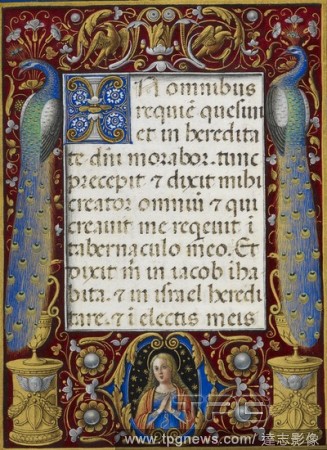 IN omnibus
requiē quesiui
et in heredita
te dn̄i morabor. tunc
precepit ⁊ dixit mihi
creator omniū ⁊ qui
creauit me reqeuit ī
tabernaculo meo. Et
dixit m̄ in iacob iha
bita. ⁊ in israel heredi
tare. ⁊ ī electis meis
TPG
www.tpgnews.com/ 達志影像